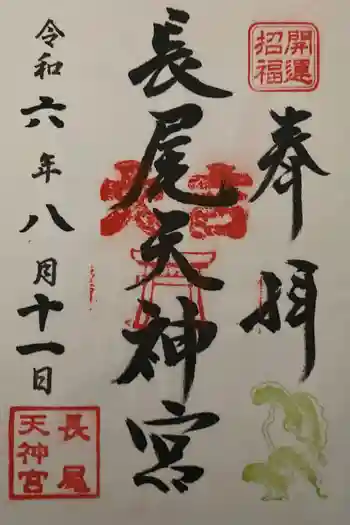 開運
招福
奉拝
長尾天神宮
令和六年八月十一日
長尾
天神宮